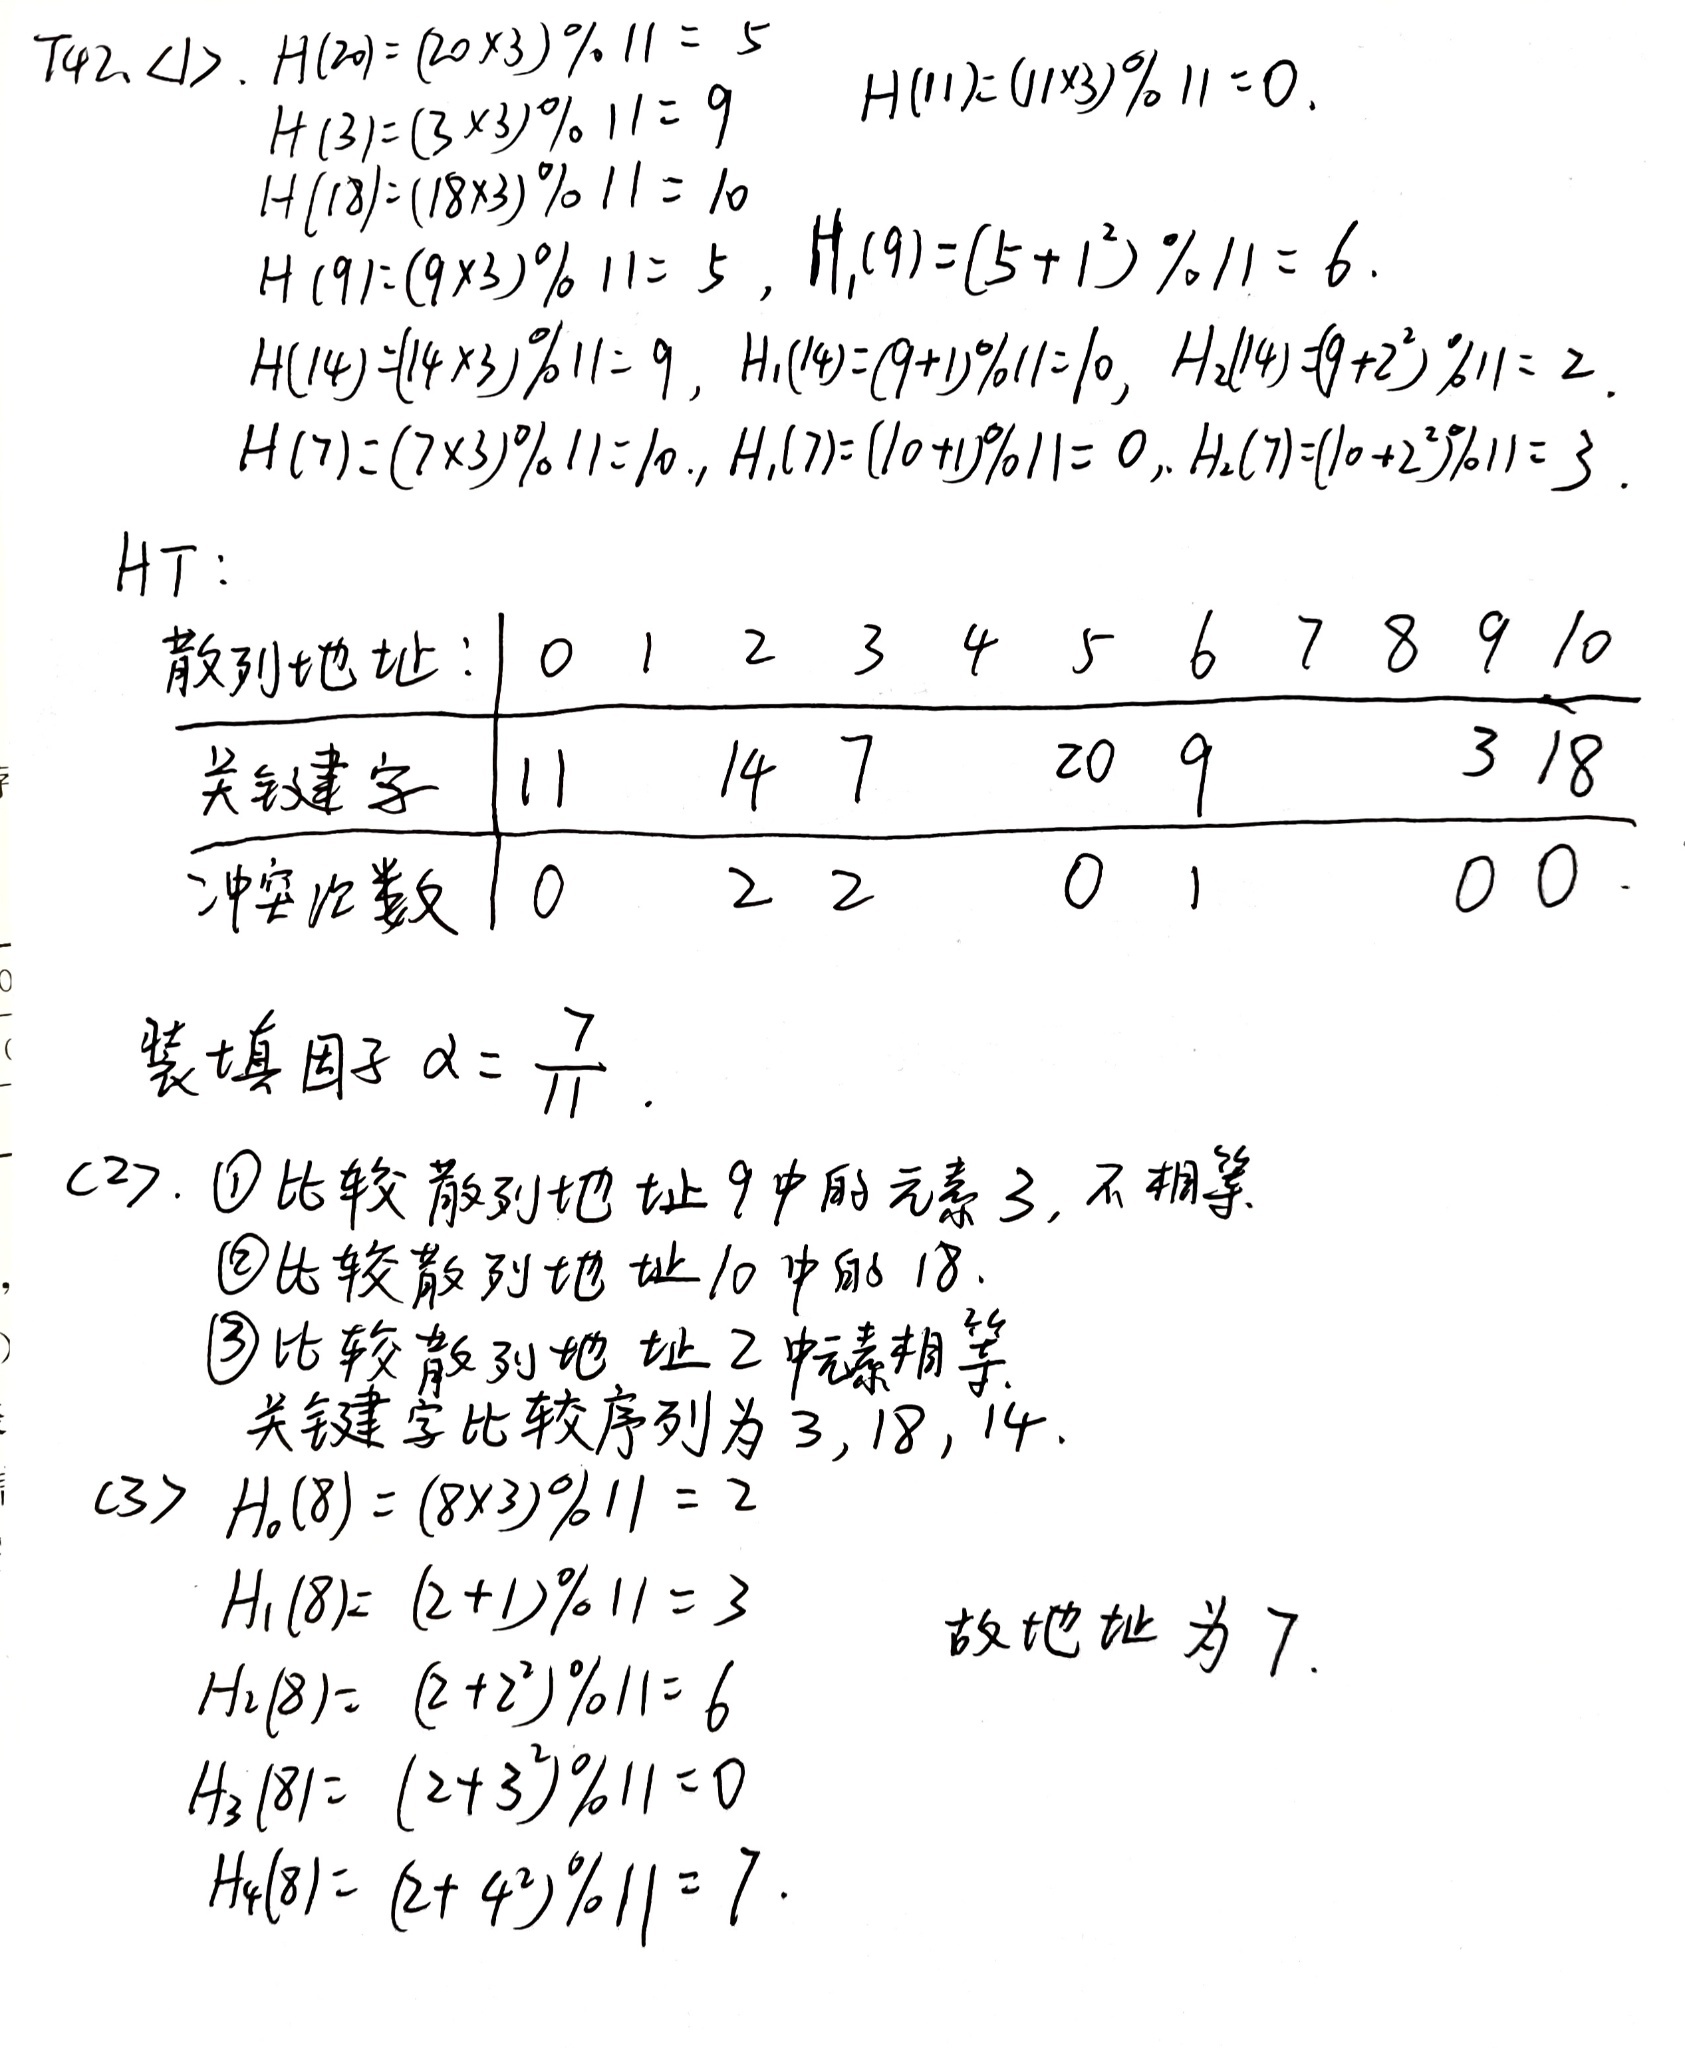 T42、<1>. H(20)=(20×3)%11=5
H(11)=(11×3)%11=0.
H(3)=(3×3)%11=9
H(18)=(18×3)%11=10
H(9)=(9×3)%11=5, H₁(9)=(5+1²)%11=6.
H(14)=(14×3)%11=9, H₁(14)=(9+1)%11=10, H₂(14)=(9+2²)%11=2.
H(7)=(7×3)%11=10., H₁(7)=(10+1)%11=0,. H₂(7)=(10+2²)%11=3.
HT:
散列地址: 0 1 2 3 4 5 6 7 8 9 10
关键字 11 14 7 20 9 3 18
冲突次数 0 2 2 0 1 0 0
装填因子 α=7/11.
<2>. ①比较散列地址9中的元素3,不相等.
②比较散列地址10中的18.
③比较散列地址2中元素相等.
关键字比较序列为3,18,14.
<3> H₀(8)=(8×3)%11=2
H₁(8)=(2+1)%11=3
故地址为7.
H₂(8)=(2+2²)%11=6
H₃(8)=(2+3²)%11=0
H₄(8)=(2+4²)%11=7.